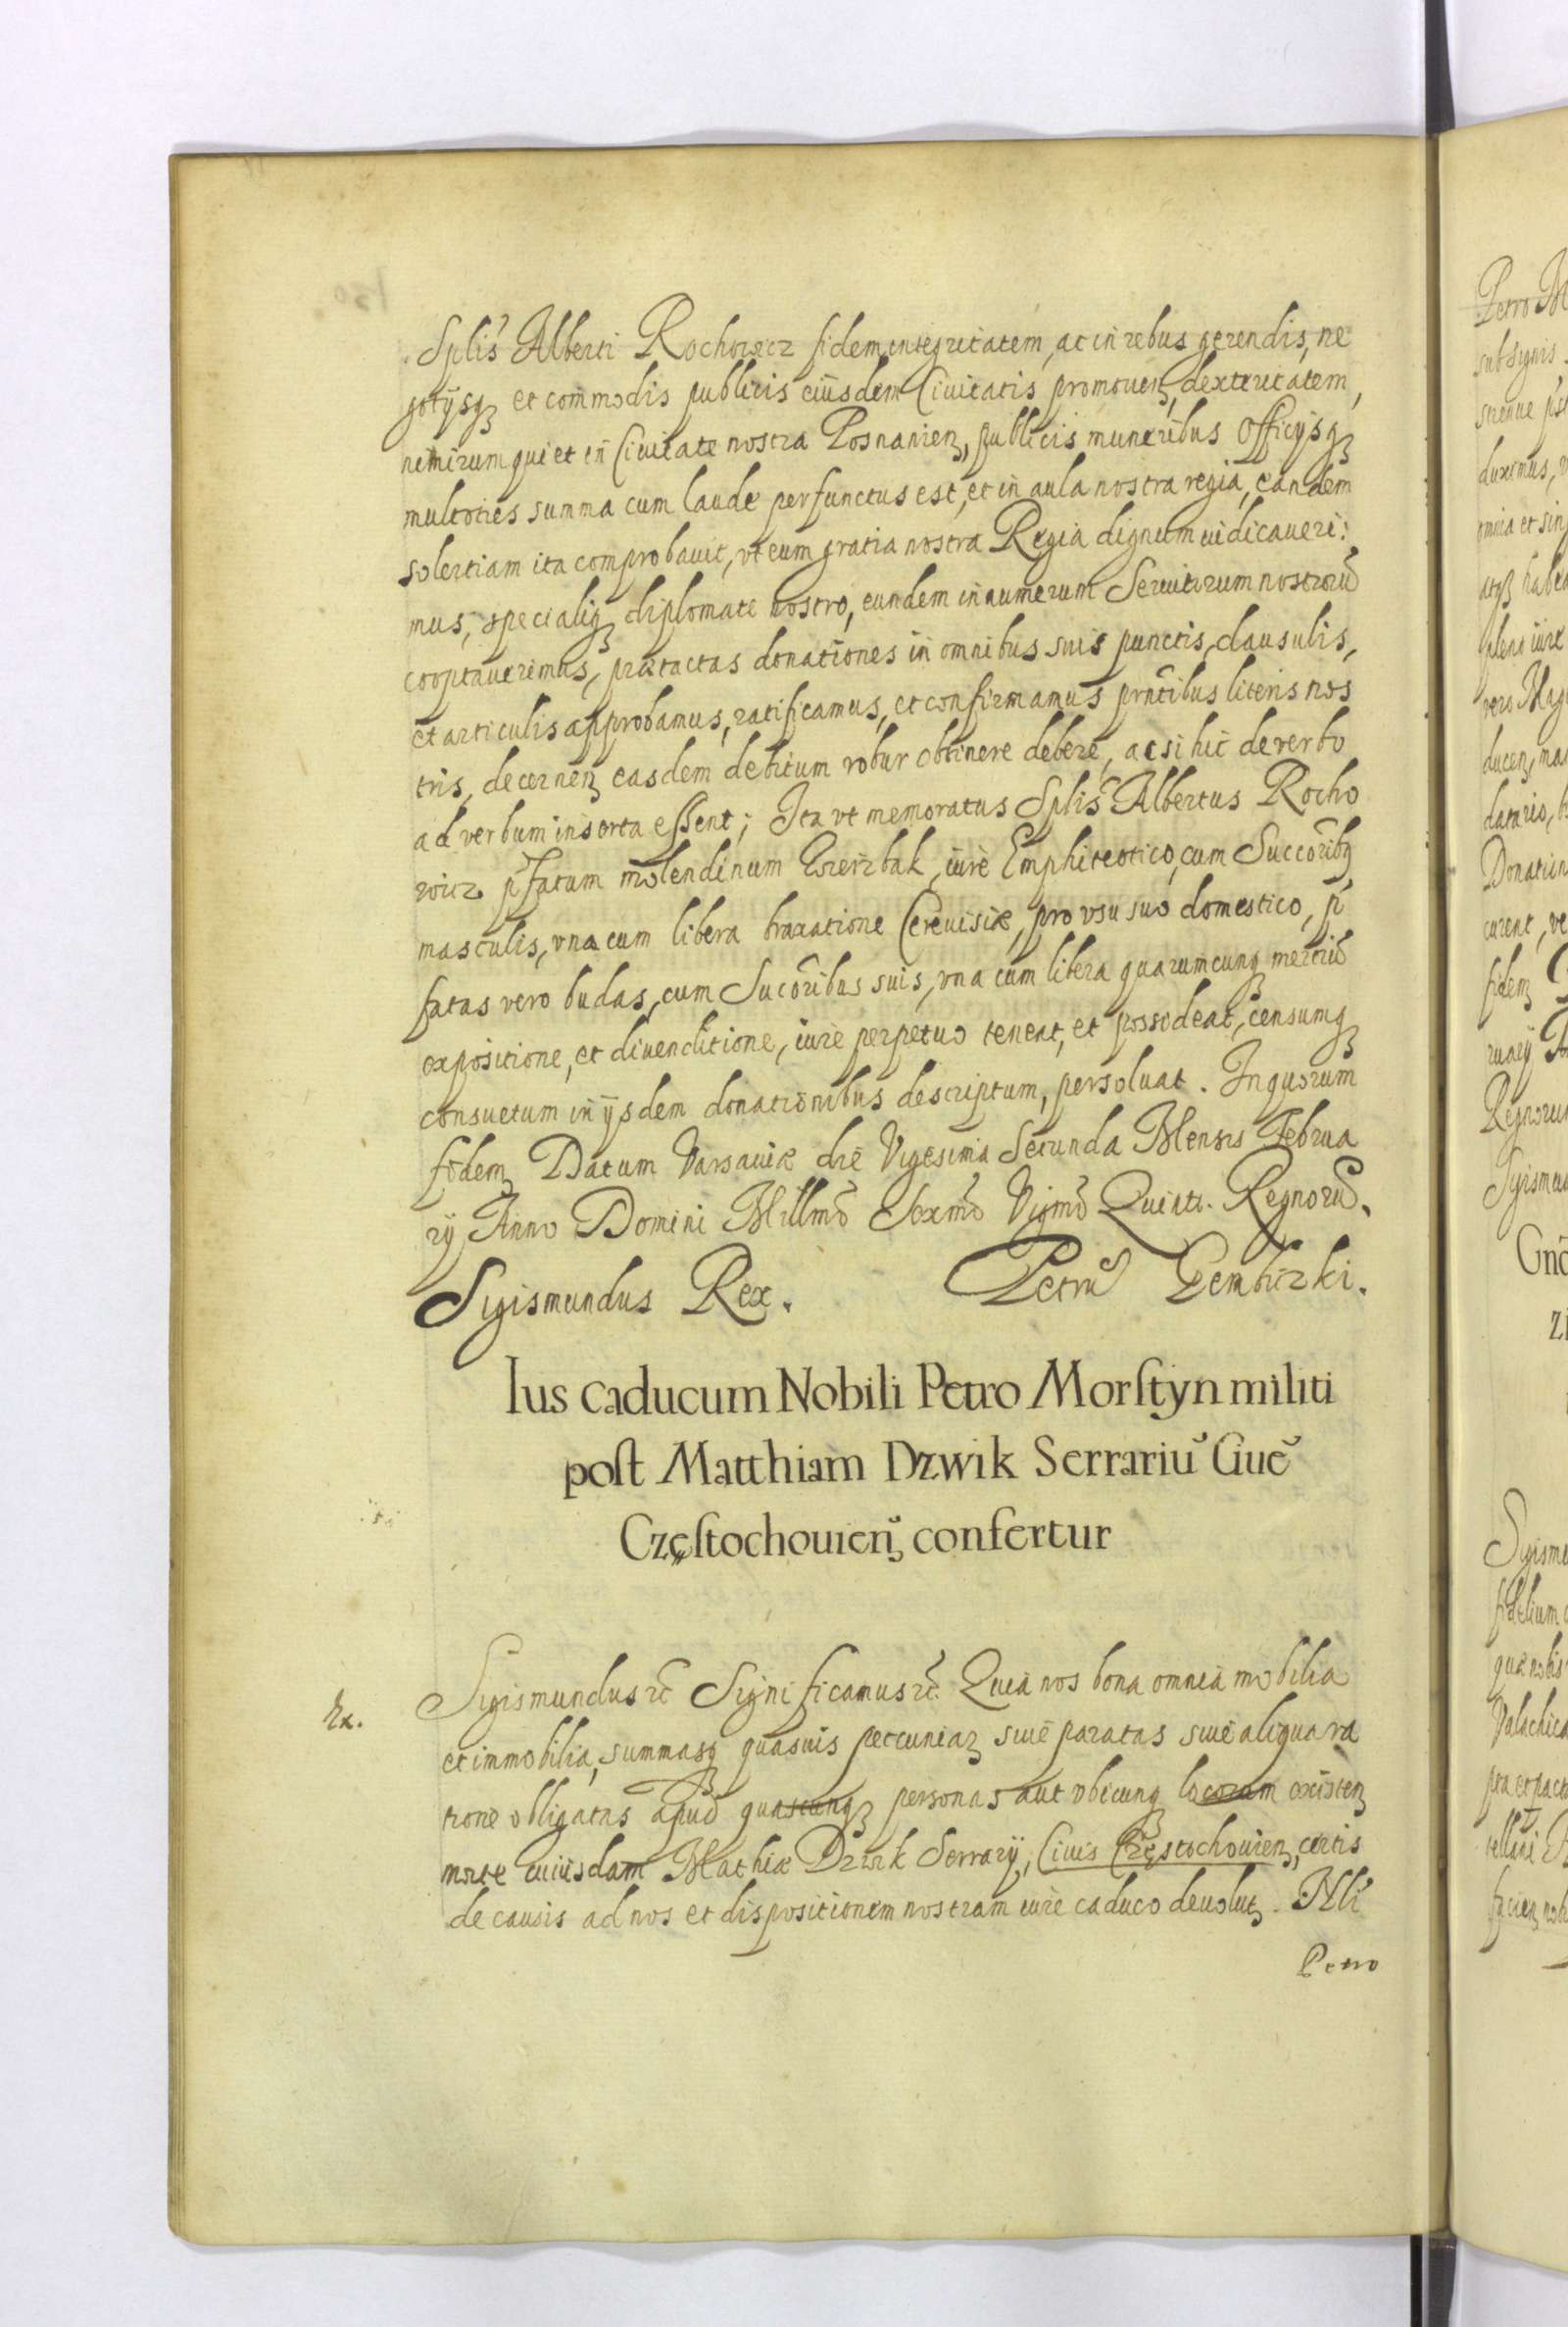 Splis Alberti Rochowicz fidem integritatem, ac in rebus gerendis, ne
gotijsqȝ et commodis publicis eiusdem Civitatis promouenȝ, dexteritatem,
nimirum qui et in Civitate nostra Posnanienȝ, publicis muneribus Officijsqȝ
multoties summa cum laude perfunctus est, et in aula nostra regia, eandem
solertiam ita comprobauit, vt eum gratia nostra Regia dignum iudicaueri:
mus, specialiqȝ diplomate nostro, eundem in numerum Seruitorum nostrorũ
cooptaueremus, prætactas donationes in omnibus suis punctis, clausulis,
et articulis approbamus, ratificamus, et confirmamus pr̃ntibus literis nos
tris, decernenȝ easdem debitum robur obtinere debere, ac si hic de verbo
ad verbum inserta essent; Ita vt memoratus Splis Albertus Rocho
wicz p̃fatum molendinum Wierzbak, iure Emphiteotico, cum Succoribȝ
masculis, vna cum libera braxatione Cereuisiæ, pro vsu suo domestico, p̃
fatas vero budas, cum Sucõribus suis, vna cum libera quarumcunqȝ merciũ
expositione, et diuenditione, iure perpetuo teneat, et possideat, censumqȝ
consuetum in ijsdem donationibus descriptum, persoluat. In quorum
fidem Datum Varsauiæ die Vigesima Secunda Mensis Februa
rij Anno Domini Millmõ Sexmõ Vigmõ Quinti. Regnorũ.
Sigismundus Rex. Petrus Gembizki.
Ius caducum Nobili Petro Morstyn militi
post Matthiam Dzwik Serrariũ Ciuẽ
Częstochouienȝ confertur
Ex.
Sigismundus rc̃ Significamus rc̃. Quia nos bona omnia mobilia
et immobilia, summasqȝ quasuis peccuniarȝ siue paratas siue aliqua ra
tione obligatas apud quascunqȝ personas aut vbicunqȝ locorum existenȝ
morte cuiusdam Mathiæ Dzwik Serrarij, Ciuis Częstochouienȝ, certis
de causis ad nos et dispositionem nostram iure caduco deuolutȝ. Nli
Petro